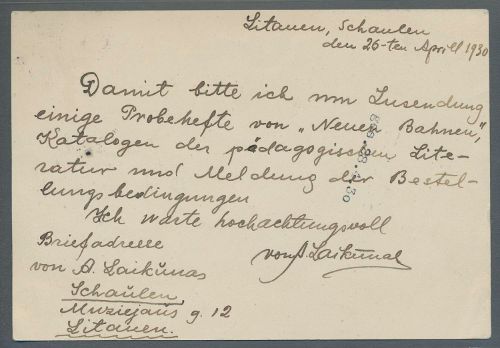 Litauen, Schaulen
den 26-ten Aprill 1930
Damit bitte ich um Zusendung
einige Probehefte von „Neuen Bahnen",
Katalogen der pädagogischen Lite-
ratur und Meldung der Bestel-
lungsbedingungen
Ich warte hochachtungsvoll
von A. Laikunas
Briefadresse
von A. Laikūnas
Schaulen
Muziejaus g. 12
Litauen.